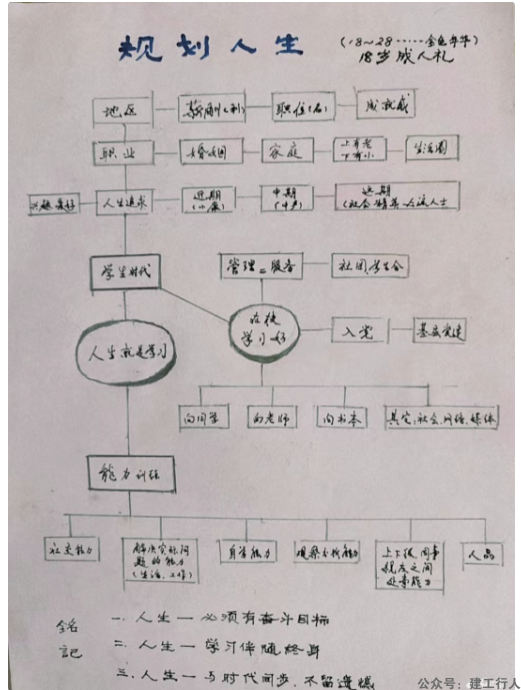 规划人生
(18~28……金色年华)
18岁成人礼
地区 薪酬(利) 职位(名) 成就感
职业 婚姻 家庭 上有老 下有小 生活圈
兴趣爱好 人生追求 近期(小康) 中期(中产) 远期(社会精英、上流人士)
学生时代 管理=服务 社团、学生会
人生就是学习 在校学习好 入党 基层党建
向同学 向老师 向书本 其它:社会、网络、媒体
能力训练
社交能力 解决实际问题的能力(生活、工作) 自学能力 观察分析能力 上下级、同事 之间 处事能力 人品
铭记
一、人生一必须有奋斗目标
二、人生一学习伴随终身
三、人生一与时代同步,不留遗憾
公众号:建工行人